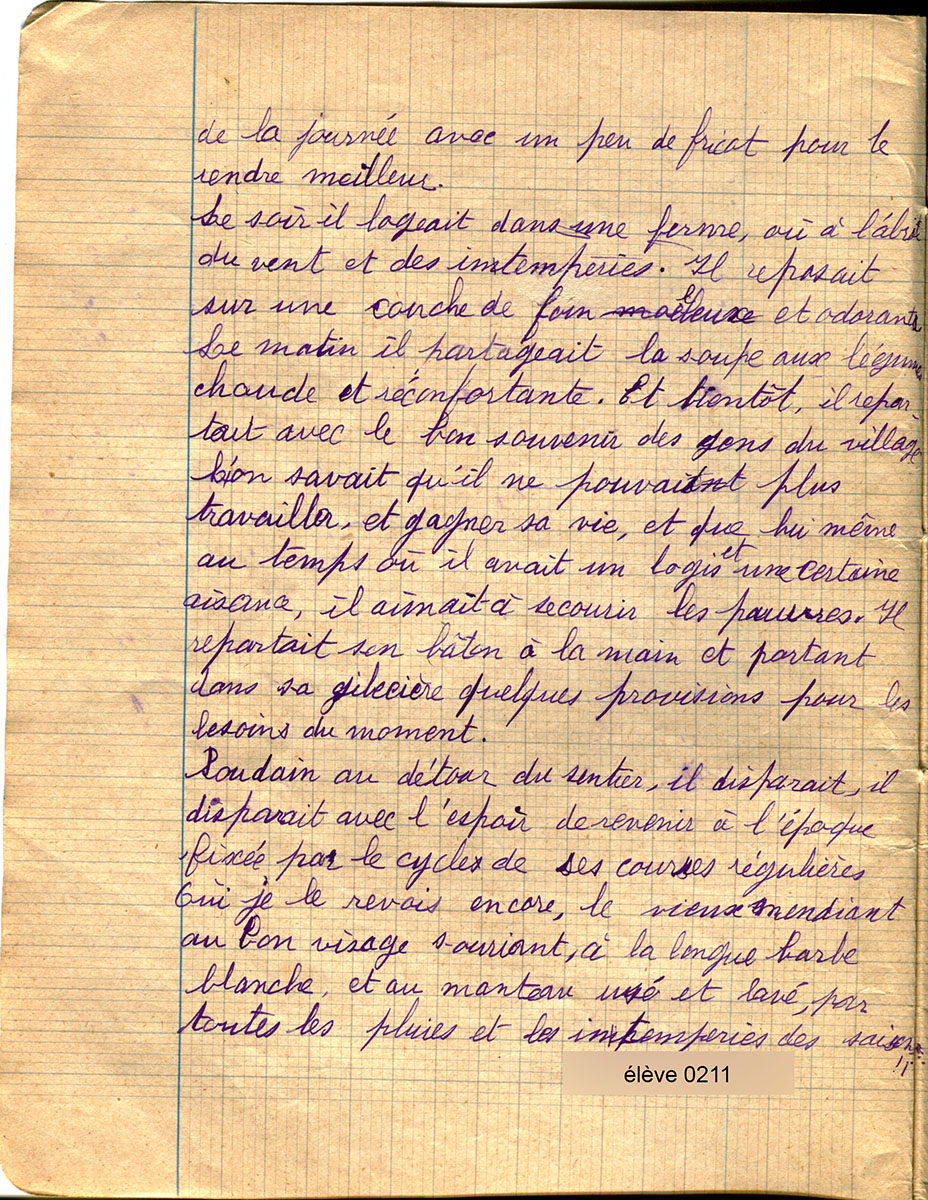 de la journée avec un peu de fricot pour le
rendre meilleur.
Le soir il logeait dans une ferme, où à l'abri
du vent et des intemperies. Il reposait
sur une couche de foin moelleuse et odorante
Le matin il partageait la soupe aux légumes
chaude et réconfortante. Et bientôt, il repar-
tait avec le bon souvenir des gens du village
L'on savait qu'il ne pouvait plus
travailler, et gagner sa vie, et que lui même
au temps où il avait un logis et une certaine
aisance, il aimait à secourir les pauvres. Il
repartait son bâton à la main et portant
dans sa gibecière quelques provisions pour les
besoins du moment.
Soudain au détour du sentier, il disparait, il
disparait avec l'espoir de revenir à l'époque
fixée par le cycle de ses courses régulières
Oui je le revois encore, le vieux mendiant
au bon visage souriant, à la longue barbe
blanche, et au manteau usé et lavé, par
toutes les pluies et les intemperies des saisons
!!
élève 0211